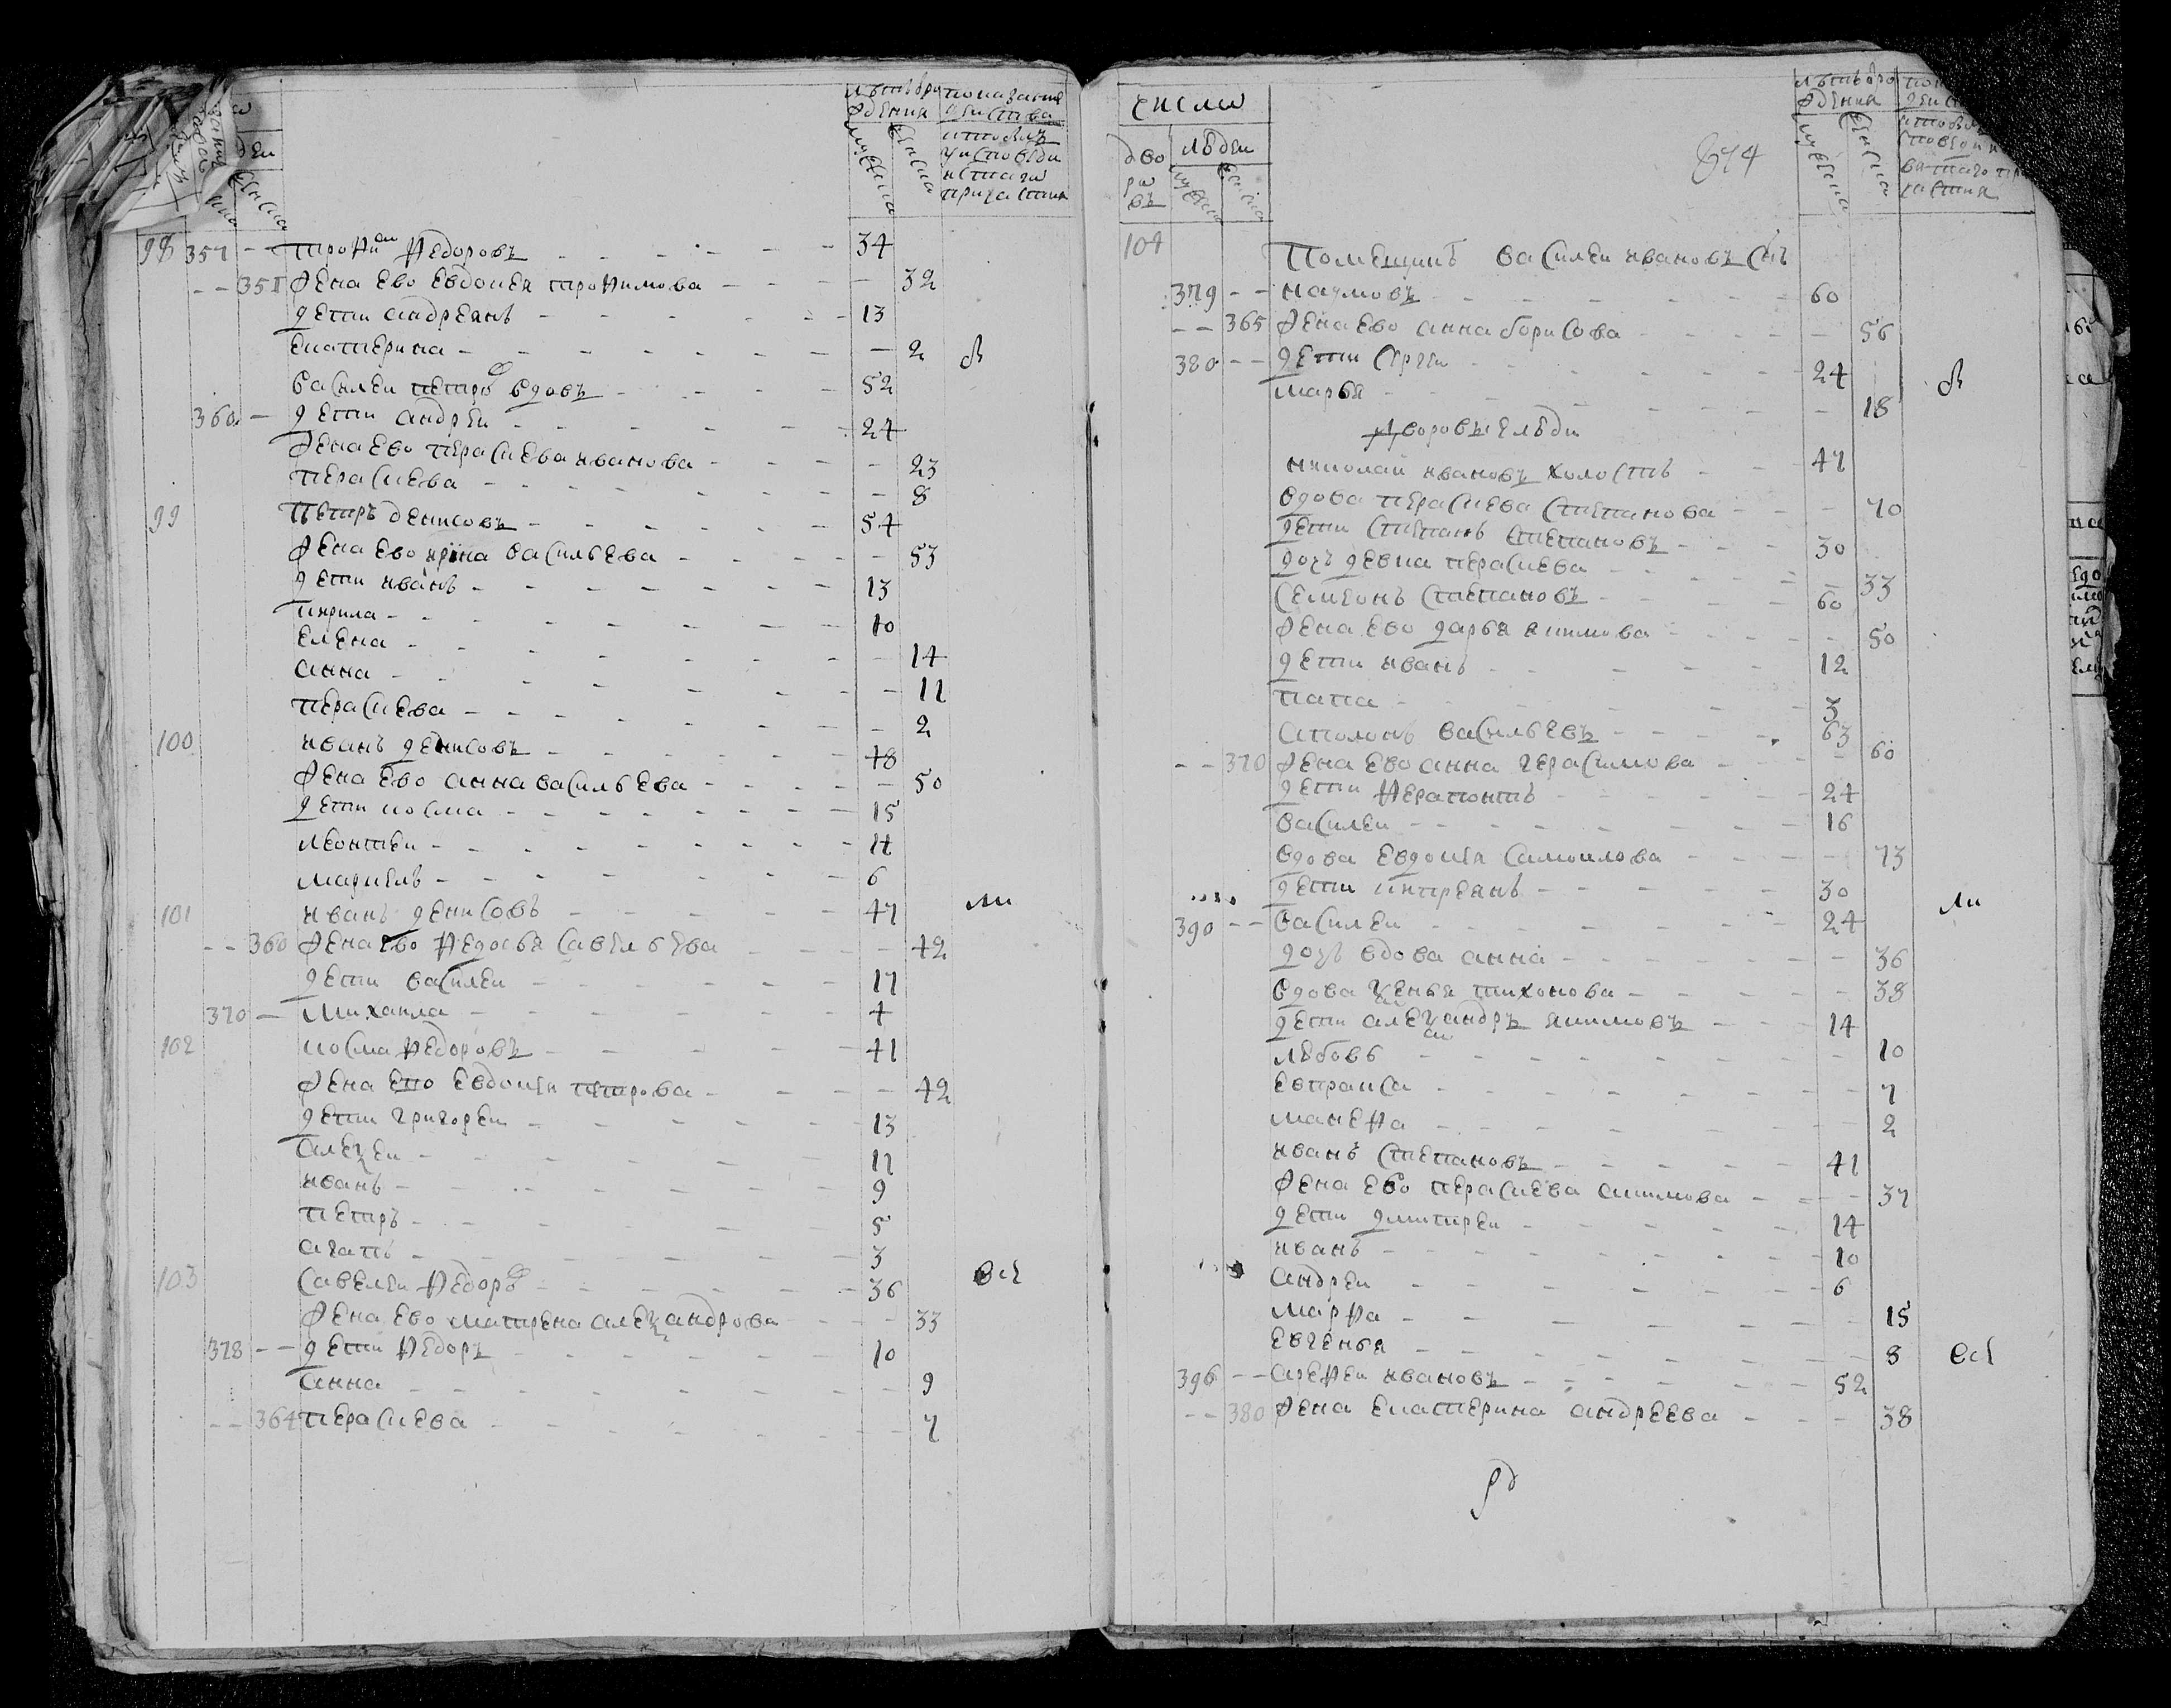 лѣтъ ѡтро
ждения
мужеска
женска
показание
действа
кто былъ
у исповеди
и стаго
причастия
98 357 -- трофимъ федоровъ 34
-- 351 жена ево евдокея трофимова 32
дети андреянъ 13
екатерина 2
василеи петровъ вдовъ 52
360 - дети андреи 24
жена ево пераскева иванова 23
пераскева 8
99 петръ денисовъ 54
жена ево ирина васильева 53
дети иванъ 13
кирила 10
елена 14
анна 11
пераскева 2
100 иванъ денисовъ 48
жена ево анна васильева 50
дети косма 15
леонтеи 11
маркелъ 6
101 иванъ денисовъ 47
-- 360 жена ево федосья савельева 42
дети василеи 17
370 - михаила 4
102 косма федоровъ 41
жена ево евдокея петрова 42
дети григореи 13
алеѯеи 11
иванъ 9
петръ 5
агапъ 3
103 савелеи федоровъ 36 всѣ
жена ево матрена алеѯандрова 33
378 -- дети федоръ 10
анна 9
-- 364 пераскева 7
числѡ
дво
рѡ
въ
людеи
мужеска
женска
674
лѣтъ ѡтро
ждения
мужеска
женска
кто былъ
104 Помещикъ василеи ивановъ снъ
379 -- наумовъ 60
-- 365 жена ево анна борисова 56
380 -- дети сергеи 24
марья 18
дворовые люди
николай ивановъ холостъ 47
вдова пераскева степанова 70
дети степанъ степановъ 30
дочь девка пераскева 33
семионъ степановъ 60
жена ево дарья якимова 50
дети иванъ 12
папа 3
аполонъ васильевъ 63
-- 370 жена ево анна герасимова 60
дети ферапонтъ 24
василеи 16
вдова евдокея самоилова 73
дети кипреянъ 30
390 -- василеи 24
дочь вдова анна 36
вдова ѯенья тихонова 38
дети алеѯандръ якимовъ 14
любовь 10
евпракса 7
манефа 2
иванъ степановъ 41
жена ево пераскева акимова 37
дети дмитреи 14
иванъ 10
андреи 6
марфа 15
евгенья 8 всѣ
396 -- арефеи ивановъ 52
-- 380 жена екатерина андреева 38
рд